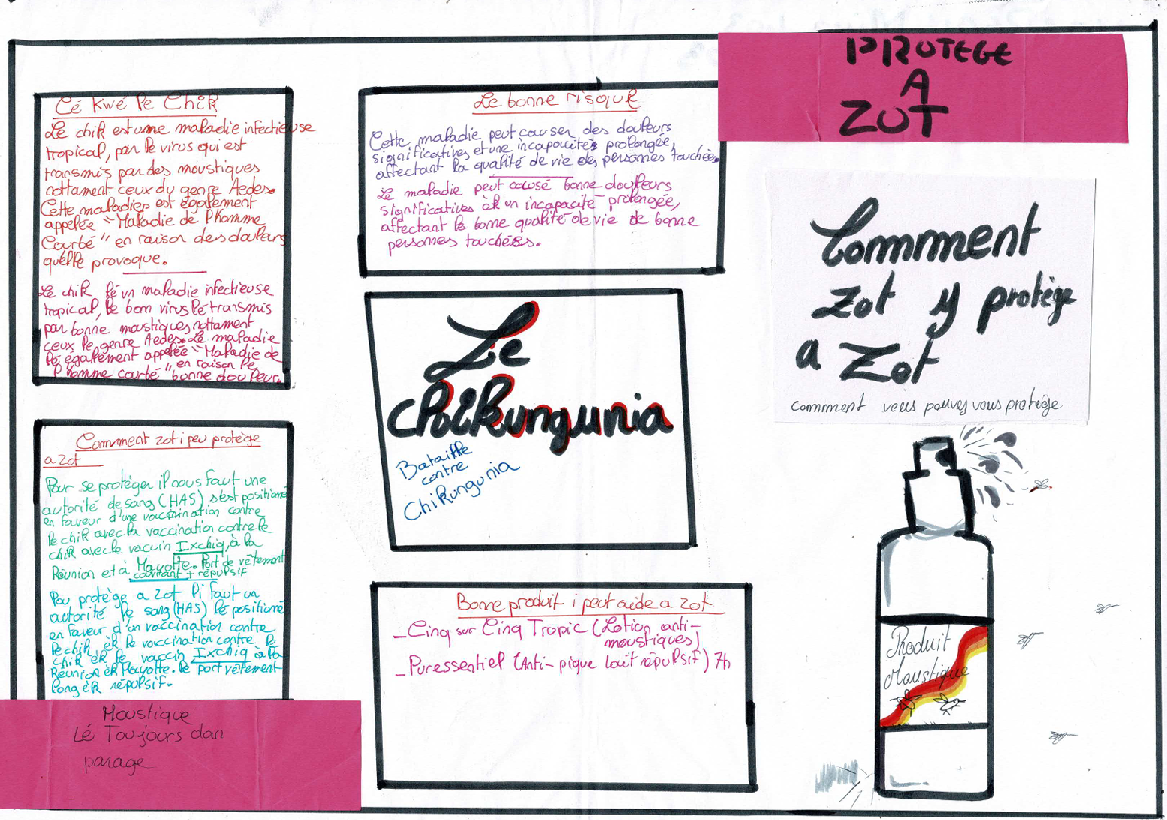 PROTEGE
A
ZOT
Cé kwé le Chik
Le chik est une maladie infectieuse
tropical, par le virus qui est
transmis par des moustiques
nottament ceux du genre Aedes.
Cette maladies est également
appelée "Maladie de l'homme
Courbé" en raison des douleurs
quelle provoque.
Le chik lé un maladie infectieuse
tropical, le bon virus lé transmis
par bonne moustiques nottament
ceux le genre Aedes. Le maladie
lé également appelée "Maladie de
l'homme courbé" en raison le
bonne douleurs
Le bonne risque
Cette maladie peut causer des douleurs
significatives et une incapacités prolongée,
affectant la qualité de vie des personnes touchées
Le maladie peut causé bonne douleurs
significatives ék un incapacité prolongée,
affectant le bonne qualité de vie de bonne
personnes touchées.
Comment
zot y protège
a Zot
comment vous pouvez vous protège
Le
Chikungunia
Bataille
contre
Chikungunia
Comment zot i peu protège
a zot
Pour se protéger il nous faut une
autorité de sang (HAS) s'est positionné
en faveur d'une vaccination contre
le chik avec la vaccination contre le
chik avec le vaccin Ixchiq, à la
Réunion et à Mayotte. Port de vêtement
couvrant + répulsif
Pou protège a zot li faut un
autorité le sang (HAS) lé positionné
en faveur d'un vaccination contre
le chik ék le vaccination contre le
chik ék le vaccin Ixchiq à la
Réunion ék Mayotte. le port vêtement
long ék répulsif.
Bonne produit i peut aide a zot
_Cinq sur Cinq Tropic (Lotion anti-
moustiques)
_Puressentiel (Anti-pique lait répulsif) 7h
Produit
Moustique
Moustique
Lé Toujours dan
parage